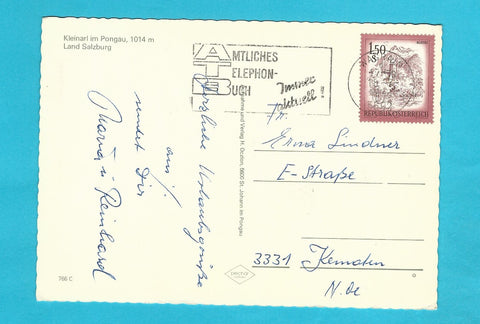 Kleinarl im Pongau, 1014 m
Land Salzburg
ATB
AMTLICHES
TELEPHON-
BUCH
Immer
aktuell!
1.50
S
REPUBLIK ÖSTERREICH
Fr.
Erna Lindner
E-Straße
3331 Kematen
N.Öe
Herzliche Urlaubsgrüße
aus
sendet Dir
Maria u Reinhard
und Verlag H. Oczlon, 5600 St. Johann im Pongau
766 C